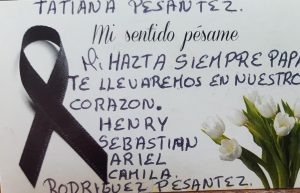 TATIANA PESANTEZ.
Mi sentido pésame
Mi HAZTA SIEMPRE PAPA
TE LLEVAREMOS EN NUESTRO
CORAZON.
HENRY
SEBASTIAN
ARIEL
CAMILA.
RODRIGUEZ PESANTEZ.